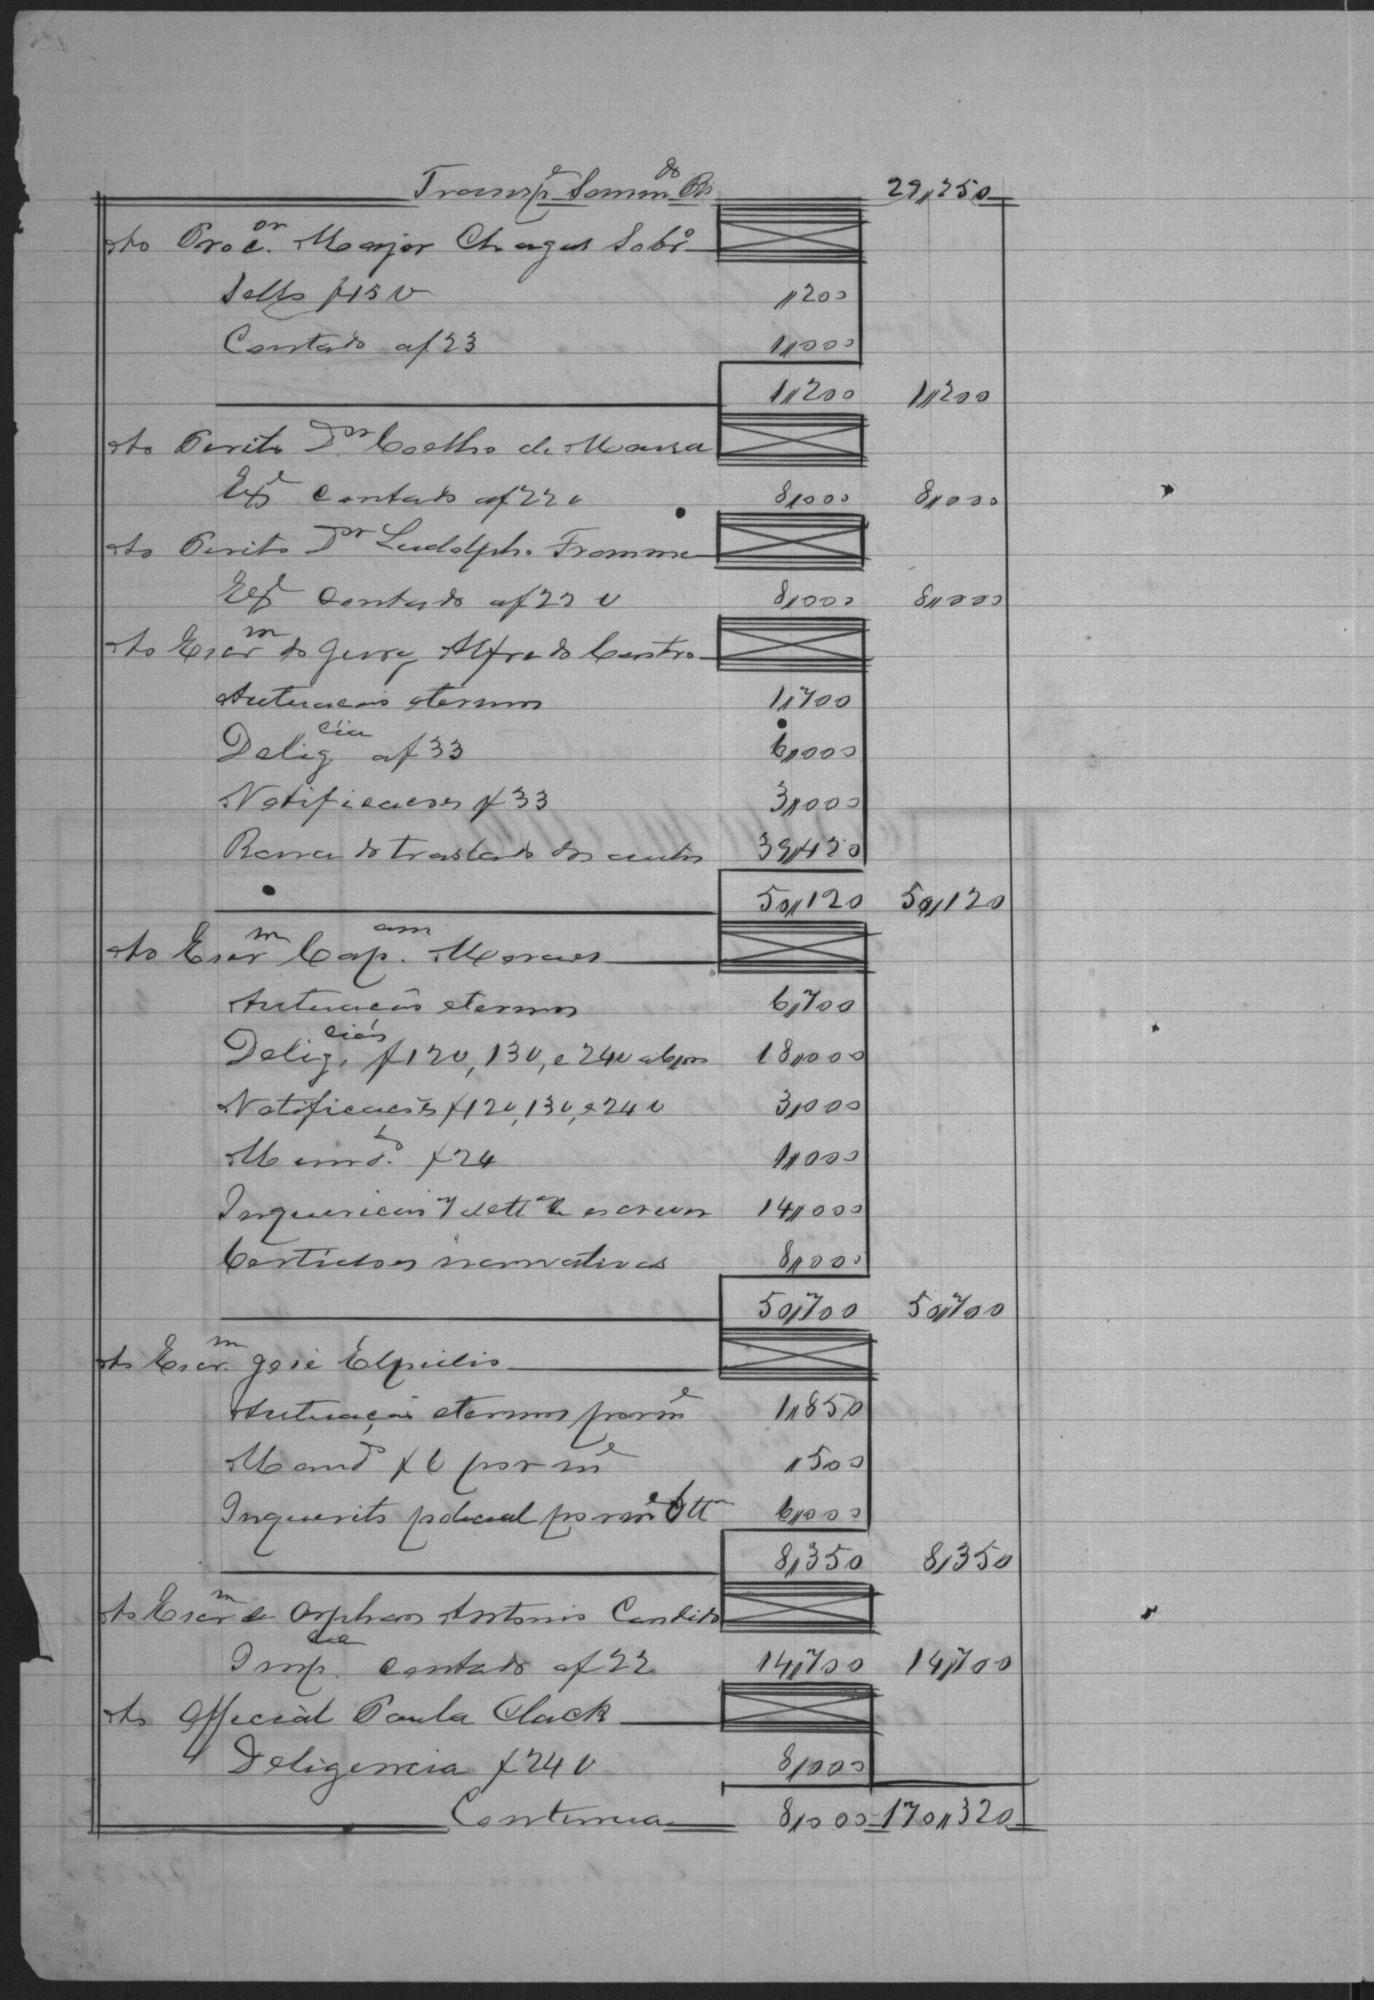 Transpe Sommdo Rs 29,250
Ao Procor. Major Chagas Sobro
Sello f 15 v ,200
Contado af 23 1,000
1,200 1,200
Ao Perito Dor. Coelho de Moura
Exe contado af 22 v 8,000 8,000
Ao Perito Dor Ludolpho Fromme
Exe contado af 22 v 8,000 8,000
Ao Escrm do Jury Alfredo Castro
Autuacao etermos 1,700
Deligcia af 33 6,000
Notificacoes f 33 3,000
Rasa do traslado dos autos 39,420
50,120 50,120
Ao Escrm Capam. Moraes
Autuacão etermos 6,700
Deligcias, f 12 v, 13 v, e 24 v 18,000
Notificacões f 12 v, 13 v, e 24 v 3,000
Mando. f 24 1,000
Inquericao 7 14,000
Certidoes narrativas 8,000
50,700 50,700
Ao Escrm. José Elpidio
Autuação etermos por me 1,850
Mando f 6 por me ,500
Inquerito policial por me 6,000
8,350 8,350
Ao Escrm de Orphaos Antonio Candido
Impcia. contado af 22 14,700 14,700
Ao Official Paula Clack
Deligencia f 24 v 8,000
Continua 8,000 170,320